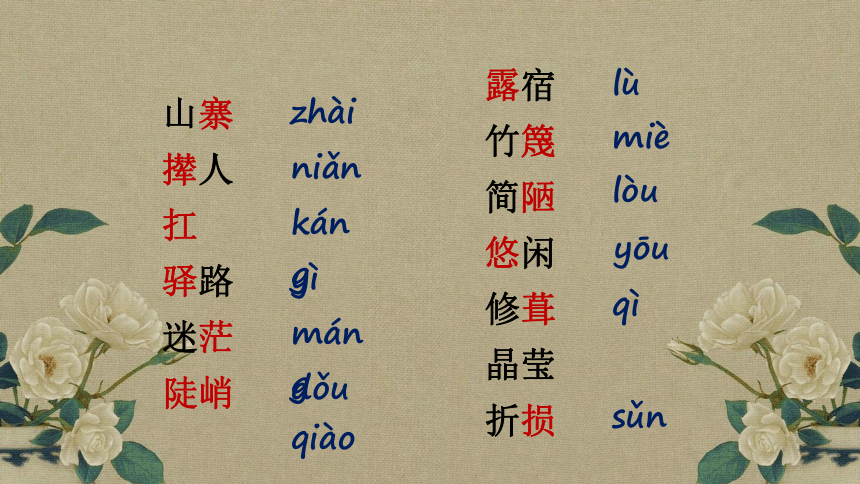 山寨 zhài
撵人 niǎn
扛 káng
驿路 yì
迷茫 máng
陡峭 dǒu
qiào
露宿 lù
竹篾 miè
简陋 lòu
悠闲 yōu
修葺 qì
晶莹
折损 sǔn